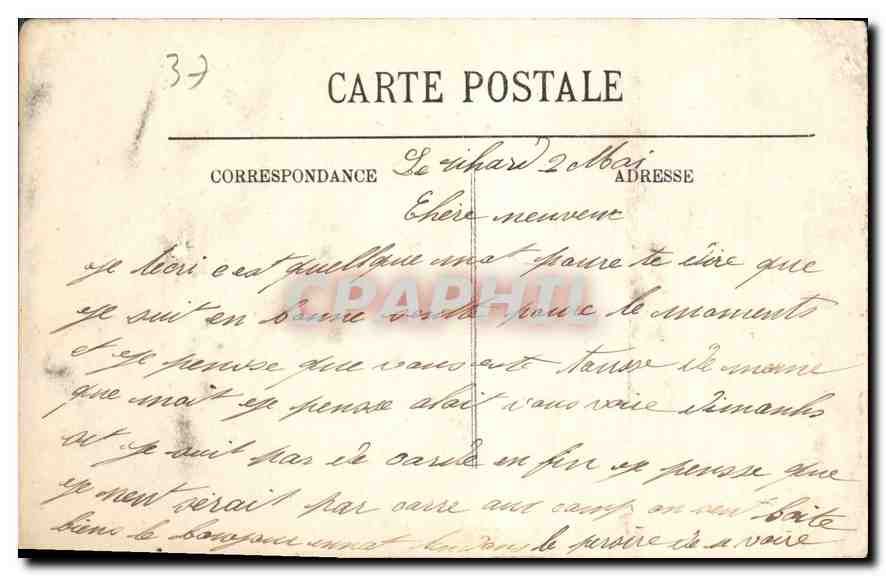 37
CARTE POSTALE
CORRESPONDANCE
ADRESSE
Le 2 Mai
Chère neuveux
Je técri c'est quellque mot poure te dire que
Je suit en bonne poure le moments
et Je pensse que vous ete tousse de meme
que moit Je pensse alait vous voire dimanhs
ost Je suit par de garde en fin Je pensse que
Je nent serait par carre aus camp on vent boite
biens le bonjoure le de a voire
CPAPHIL